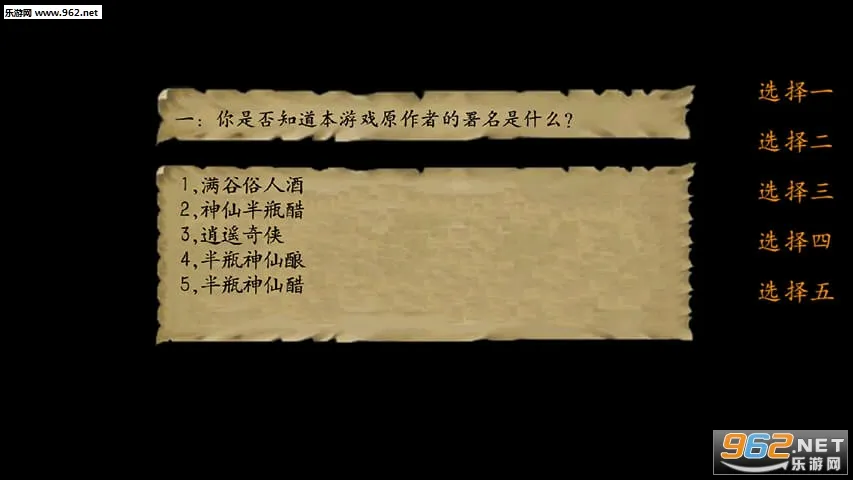 乐游网 www.962.net
一：你是否知道本游戏原作者的署名是什么？
1,满谷俗人酒
2,神仙半瓶醋
3,逍遥奇侠
4,半瓶神仙酿
5,半瓶神仙醋
选择一
选择二
选择三
选择四
选择五
962.NET
乐游网